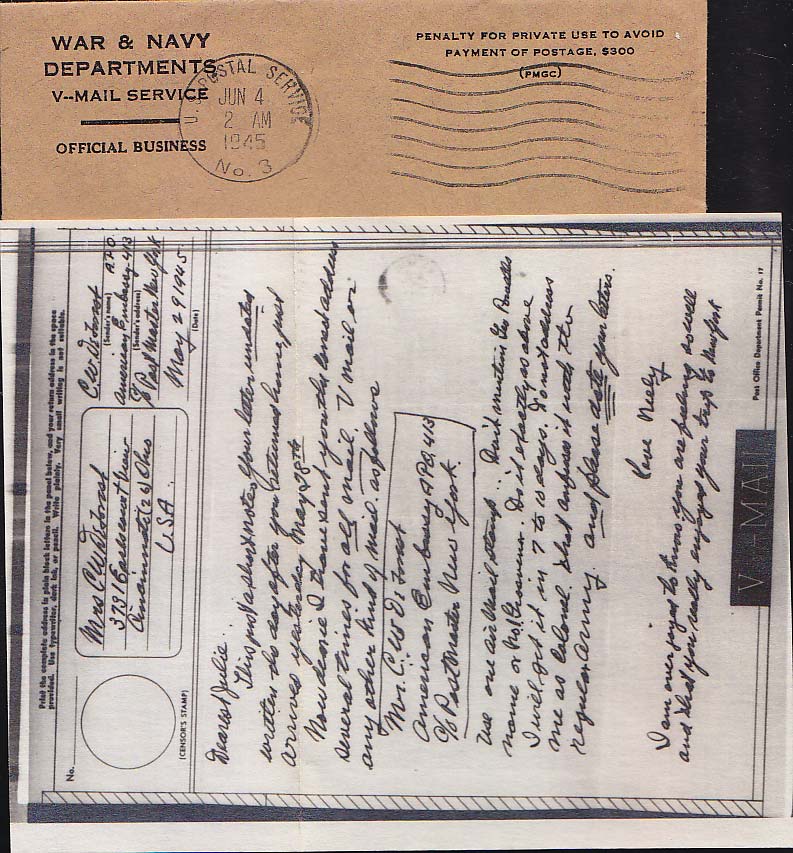 WAR & NAVY
DEPARTMENTS
V--MAIL SERVICE
OFFICIAL BUSINESS
U.S. POSTAL SERVICE
JUN 4
2 AM
1945
No. 3
PENALTY FOR PRIVATE USE TO AVOID
PAYMENT OF POSTAGE, $300
(PMGC)
Print the complete address in plain block letters in the panel below, and your return address in the space
provided. Use typewriter, dark ink, or pencil. Write plainly. Very small writing is not suitable.
No.
(CENSOR'S STAMP)
Mrs C.W. DeForest
3731 Earlscourt View
Cincinnati (26) Ohio
U.S.A.
C.W. DeForest
(Sender's name)
A.P.O.
American Embassy 413
(Sender's address)
c/o Post Master New York
May 29 1945
(Date)
Dearest Julie
This just a short note. Your letter undated
written the day after you returned home, just
arrived yesterday May 28th
Now dearie I have sent you the correct address
several times for all mail. V mail or
any other kind of mail. as follows
Mr. C. W. DeForest
American Embassy APO 413
c/o Post Master New York
Use one air mail stamp. Don't mention the
name or No/. Do it exactly as above
I will get it in 7 to 10 days. Do not address
me as Colonel that confuses it with the
regular army. and please date your letters.
Love Neely
I am overjoyed to know you are feeling so well
and that you really enjoyed your trip to New York
V - MAIL
Post Office Department Permit No. 17